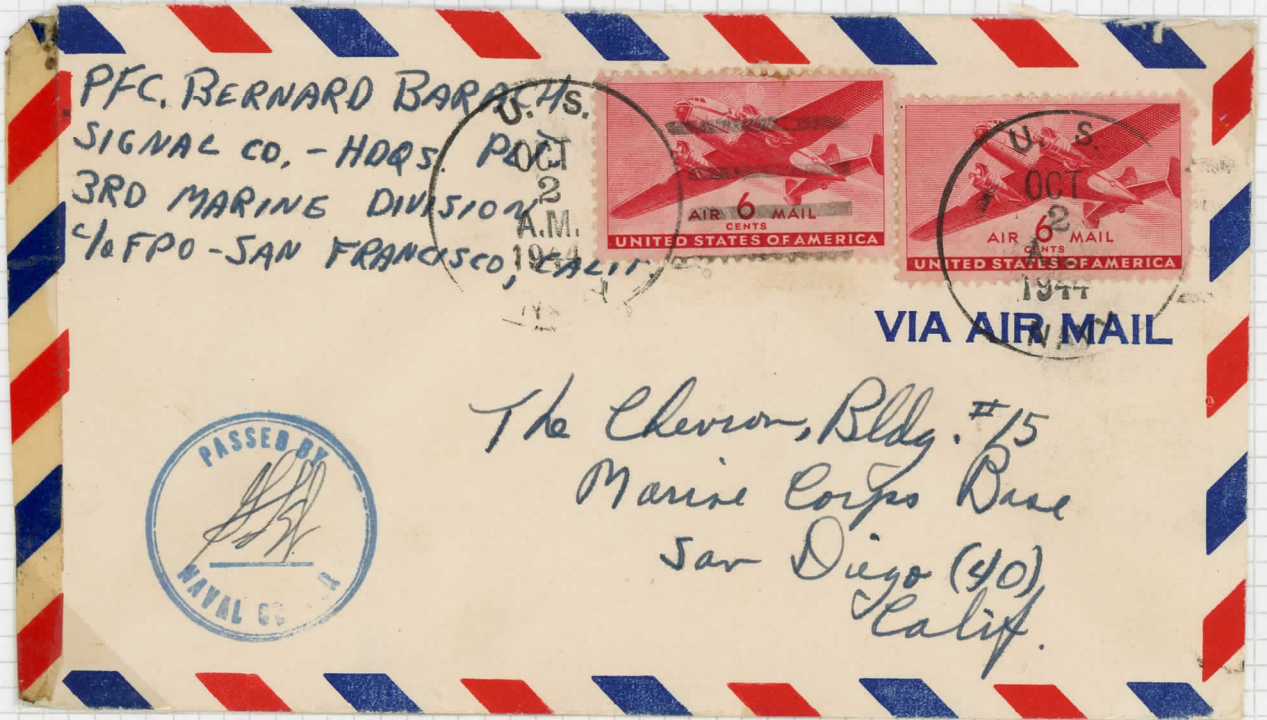 PFC. BERNARD BARACH
SIGNAL CO. - HDQS. PLT
3RD MARINE DIVISION
c/o FPO - SAN FRANCISCO, CALIF.
U. S.
OCT
2
A.M.
1944
AIR 6 MAIL
CENTS
UNITED STATES OF AMERICA
U. S.
OCT
2
A.M.
1944
NAVY
AIR 6 MAIL
CENTS
UNITED STATES OF AMERICA
VIA AIR MAIL
The Chevron, Bldg. #15
Marine Corps Base
San Diego (40)
Calif.
PASSED BY
NAVAL